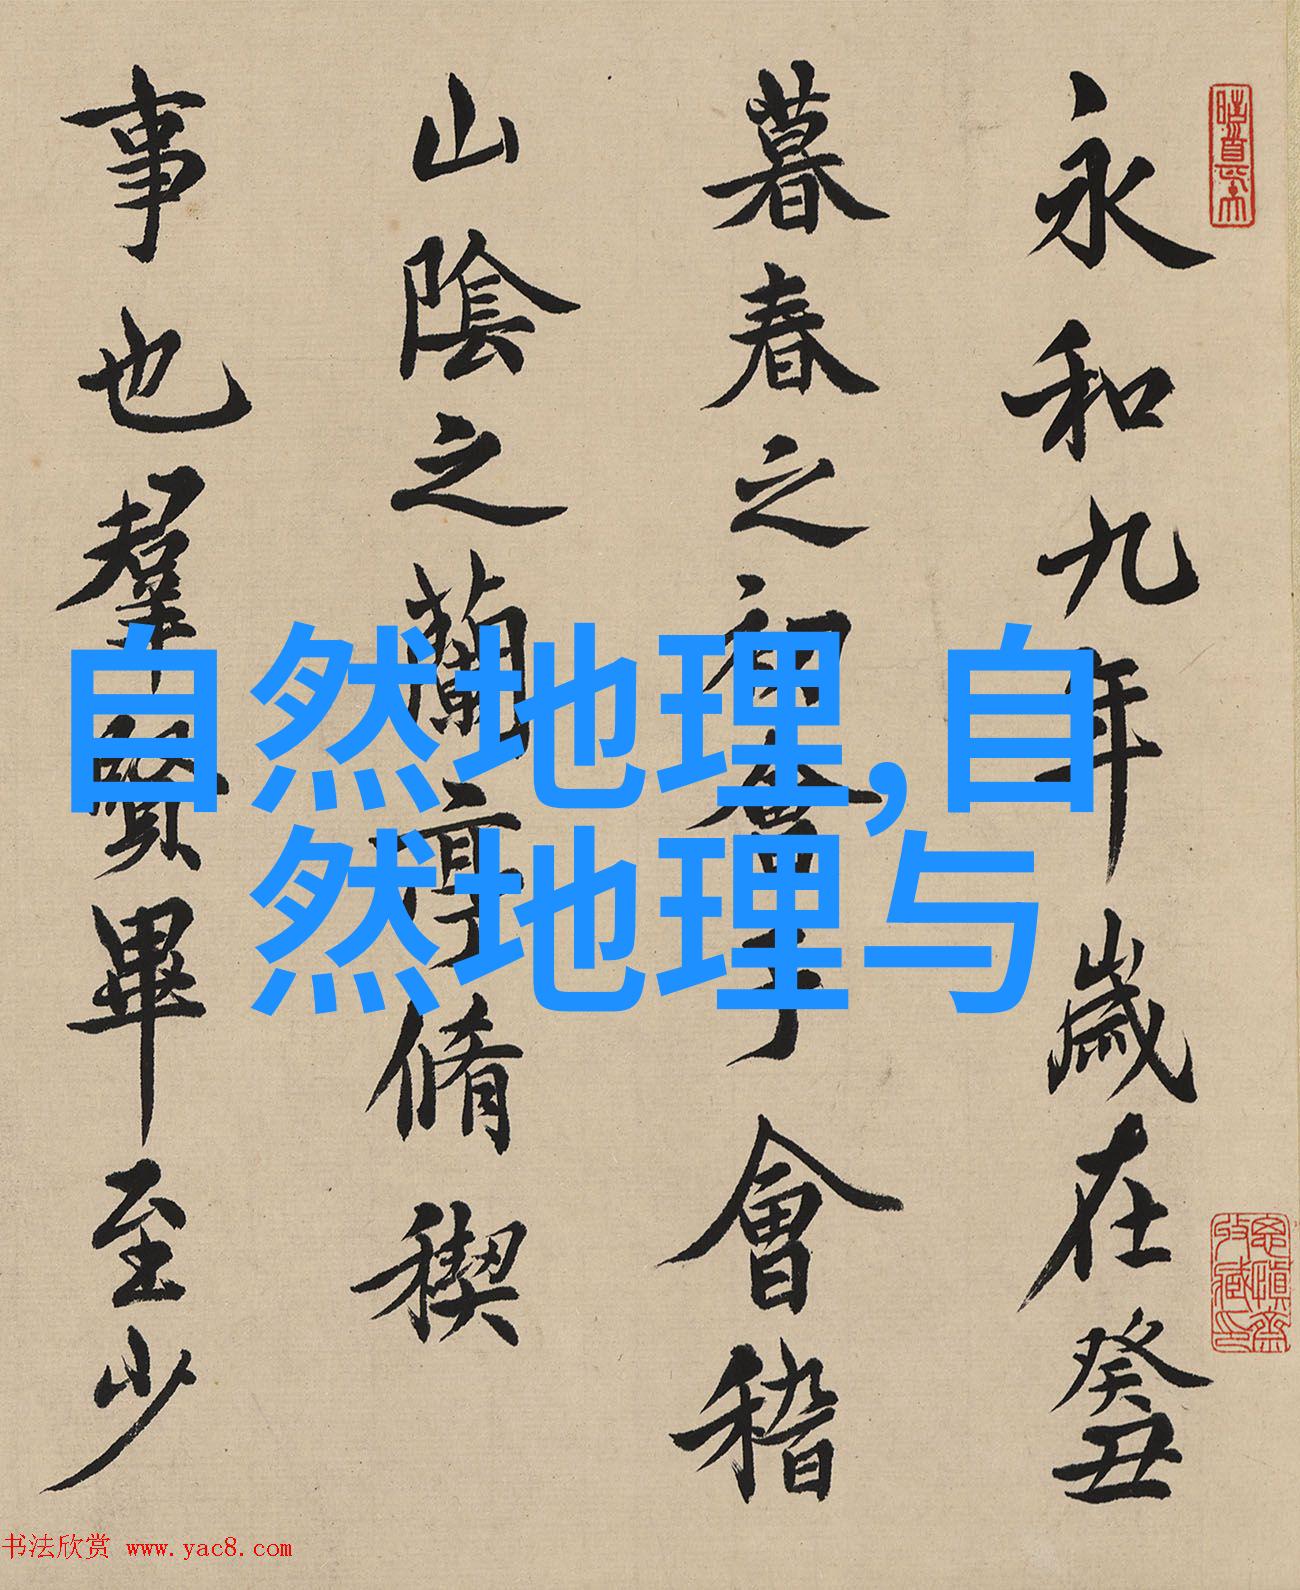 永和九年歲在癸丑
暮春之初會于會稽
山陰之蘭亭脩稧
事也羣賢畢至少
自然地理,自
然地理与
书法欣赏 www.yac8.com